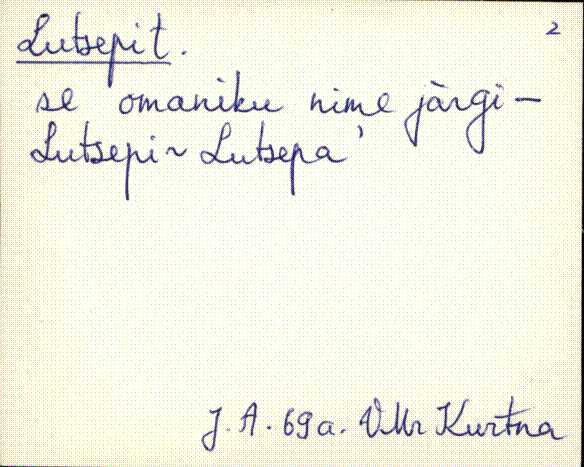 2
Lutsepit.
se omaniku nime järgi –
Lutsepi ~ Lutsepa'
J. A. 69 a. VMr Kurtna